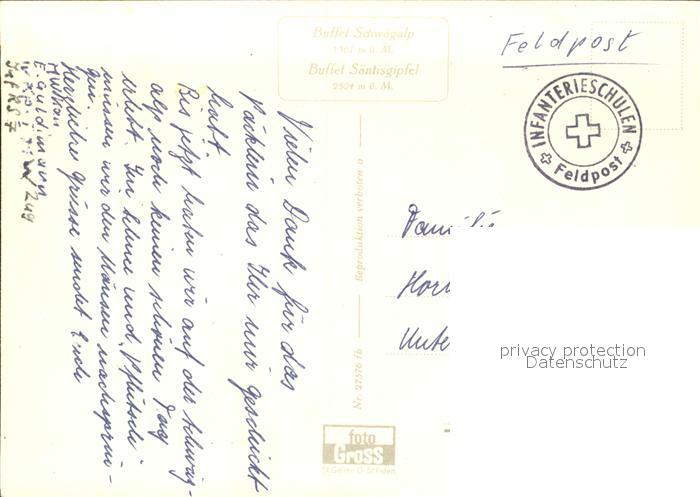 Buffet Schwägalp
1361 m ü. M.
Buffet Säntisgipfel
2504 m ü. M.
Feldpost
INFANTERIESCHULEN
Feldpost
Vielen Dank für das
Päcklein das Ihr mir geschickt
habt
Bis jetzt haben wir auf der Schwäg-
alp noch keinen schönen Tag
erlebt. Im Schnee und "Pflutsch"
müssen wir den Mänsen nachsprin-
gen.
Herzliche Grüsse sendet Euch
E. Guldimann
Inf RS 7
Reproduktion verboten
Nr. 27576 fb
foto
Gross
St. Gallen O St. Fiden
privacy protection
Datenschutz